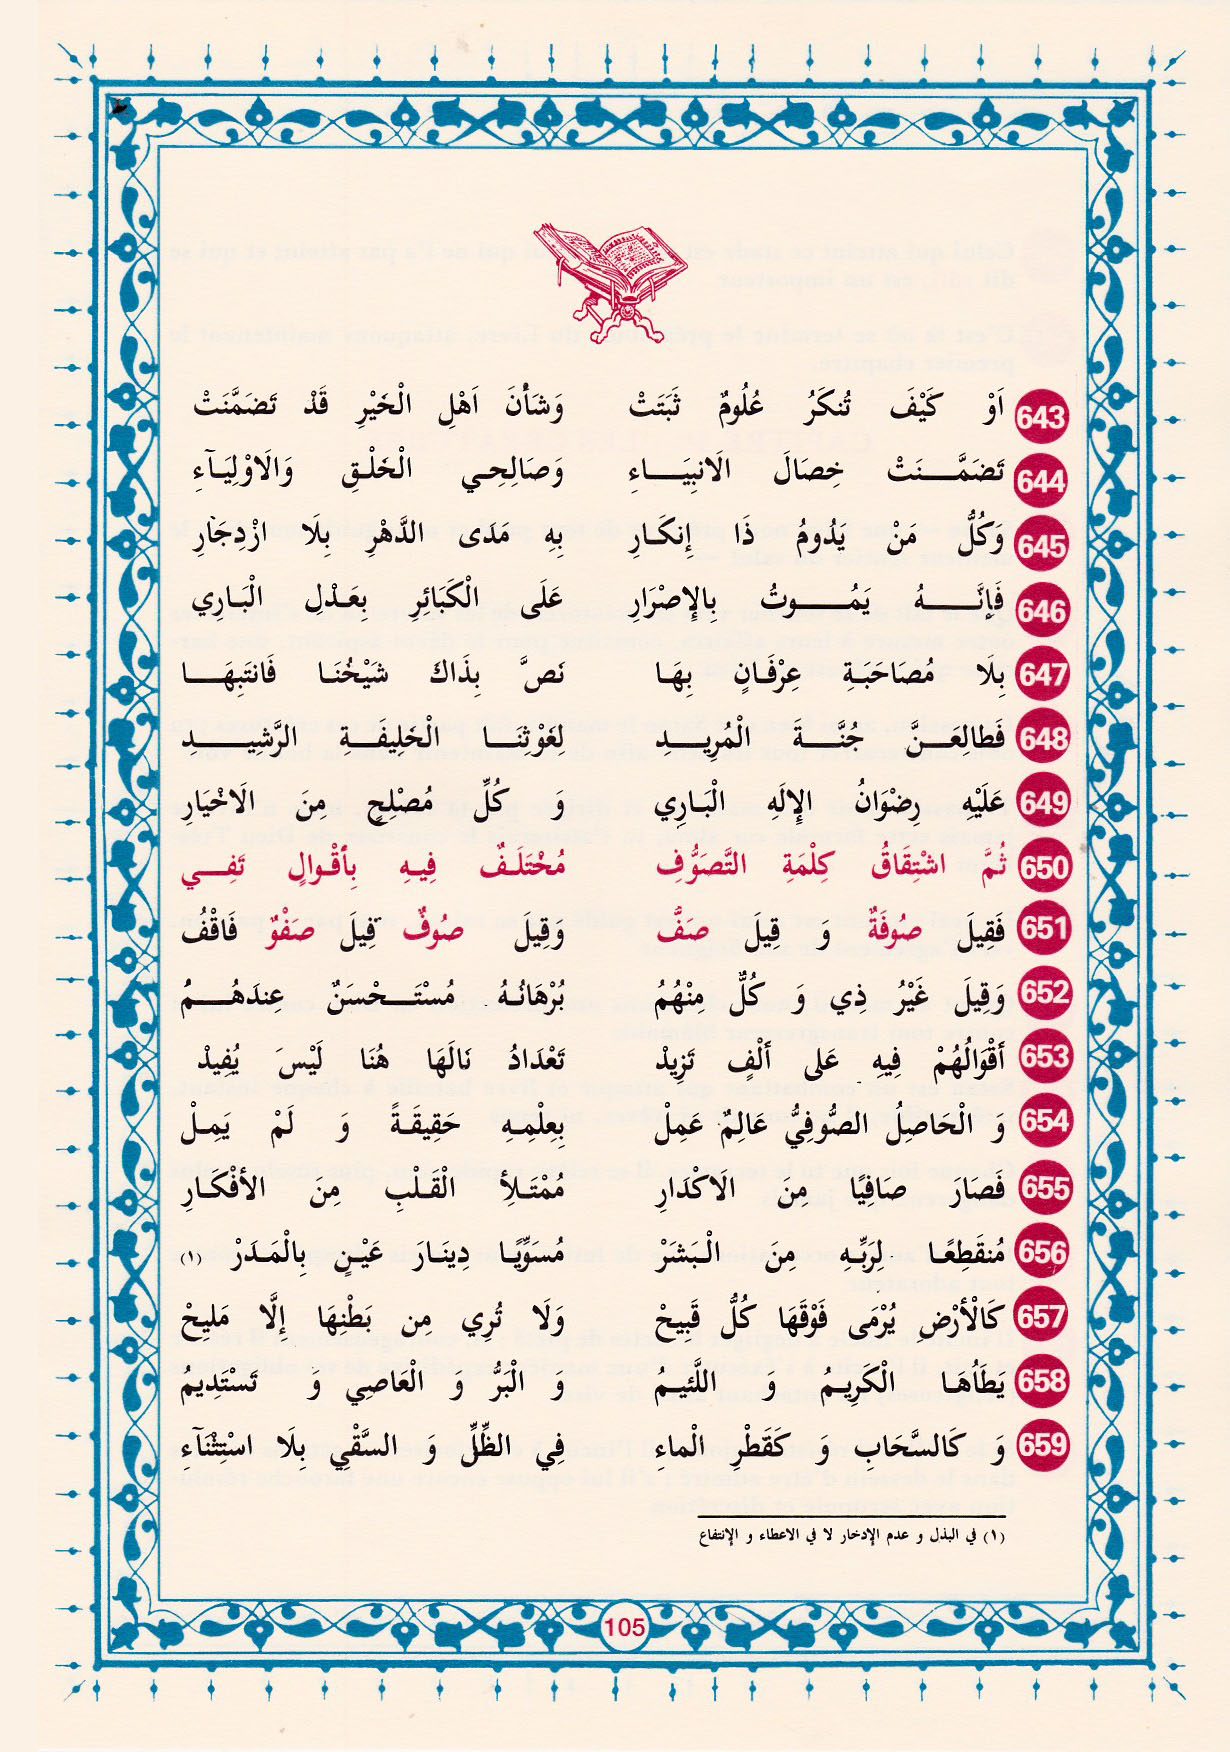 643 اَوْ كَيْفَ تُنكَرُ عُلُومٌ ثَبَتَتْ وَشَأْنَ اَهْلِ الْخَيْرِ قَدْ تَضَمَّنَتْ
644 تَضَمَّنَتْ خِصَالَ الَانبِيَاءِ وَصَالِحِي الْخَلْقِ وَالَاوْلِيَآءِ
645 وَكُلُّ مَنْ يَدُومُ ذَا إِنكَارِ بِهِ مَدَى الدَّهْرِ بِلَا ازْدِجَارِ
646 فَإِنَّهُ يَمُوتُ بِالإِصْرَارِ عَلَى الْكَبَائِرِ بِعَدْلِ الْبَارِي
647 بِلَا مُصَاحَبَةِ عِرْفَانٍ بِهَا نَصَّ بِذَاكَ شَيْخُنَا فَانتَبِهَا
648 فَطالِعَنَّ جُنَّةَ الْمُرِيدِ لِغَوْثِنَا الْخَلِيفَةِ الرَّشِيدِ
649 عَلَيْهِ رِضْوَانُ الإِلَهِ الْبَارِي وَ كُلِّ مُصْلِحٍ مِنَ الَاخْيَارِ
650 ثُمَّ اشْتِقَاقُ كِلْمَةِ التَّصَوُّفِ مُخْتَلَفٌ فِيهِ بِأقْوالٍ تَفِي
651 فَقِيلَ صُوفَةٌ وَ قِيلَ صَفَّ وَقِيلَ صُوفٌ قِيلَ صَفْوٌ فَاقْفُ
652 وَقِيلَ غَيْرُ ذِي وَ كُلٌّ مِنْهُمُ بُرْهَانُهُ مُسْتَحْسَنٌ عِندَهُمُ
653 أقْوَالُهُمْ فِيهِ عَلى ألْفٍ تَزِيدْ تَعْدَادُ نَالَهَا هُنَا لَيْسَ يُفِيدْ
654 وَ الْحَاصِلُ الصُّوفِيُّ عَالِمٌ عَمِلْ بِعِلْمِهِ حَقِيقَةً وَ لَمْ يَمِلْ
655 فَصَارَ صَافِيًا مِنَ الَاكْدَارِ مُمْتَلِأَ الْقَلْبِ مِنَ الأفْكَارِ
656 مُنقَطعًا لِرَبِّهِ مِنَ الْبَشَرْ مُسَوِّيًا دِينَارَ عَيْنٍ بِالْمَدَرْ (١)
657 كَالْأرْضِ يُرْمَى فَوْقَهَا كُلُّ قَبِيحْ وَلَا تُرِي مِن بَطْنِهَا إِلَّا مَلِيحْ
658 يَطَأُهَا الْكَرِيمُ وَ اللَّئيمُ وَ الْبَرُّ وَ الْعَاصِي وَ تَسْتَدِيمُ
659 وَ كَالسَّحَابِ وَ كَقَطْرِ الْماءِ فِي الظِّلِّ وَ السَّقْيِ بِلَا اسْتِثْنَآءِ
(١) في البذل و عدم الإدخار لا في الاعطاء و الإنتفاع
105